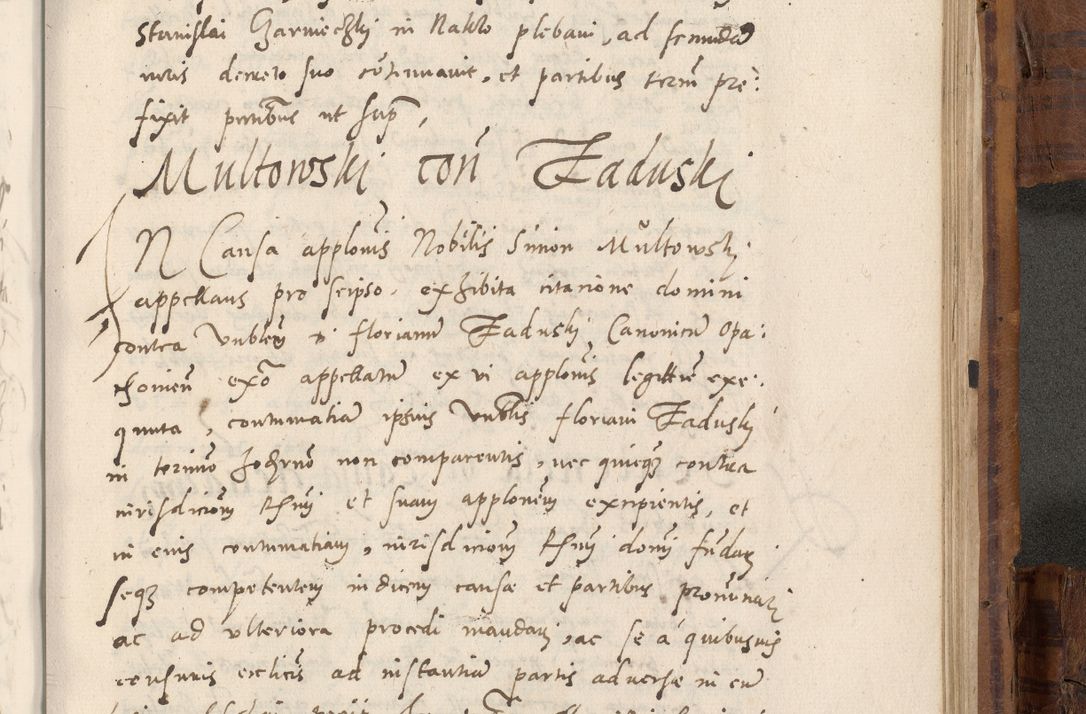 Stanislai Czarnieczki in Naklo plebani, ad secunda
iuris decreto suo cōtinuavit, et partibus term̄ pre:
fixit partibus ut sup̄,
Multowski con̄ Zaduski
IN Causa applonis Nobilis Simon Multowski
appellans pro seipso, exhibita citacione domini
contra Vnblem D florianu Zaduski Canonicu Opa:
thonien̄ ex̄o appellatu ex vi applonis legittie exe:
quuta, contumatia ipsius Vnblis floriani Zaduski
in termino hodierno non comparentis, nec quicq contra
iurisdicionem R̄mi et suam applonem excipientis, et
in eius contumatiam, iurisdicionem R̄mi domi fundari
seq competentem iudicem causae et partibus pronunciari
ac ad vlteriora procedi mandari, ac se a quibusuis
censuris ecclicis ad instantia partis adversae in eu